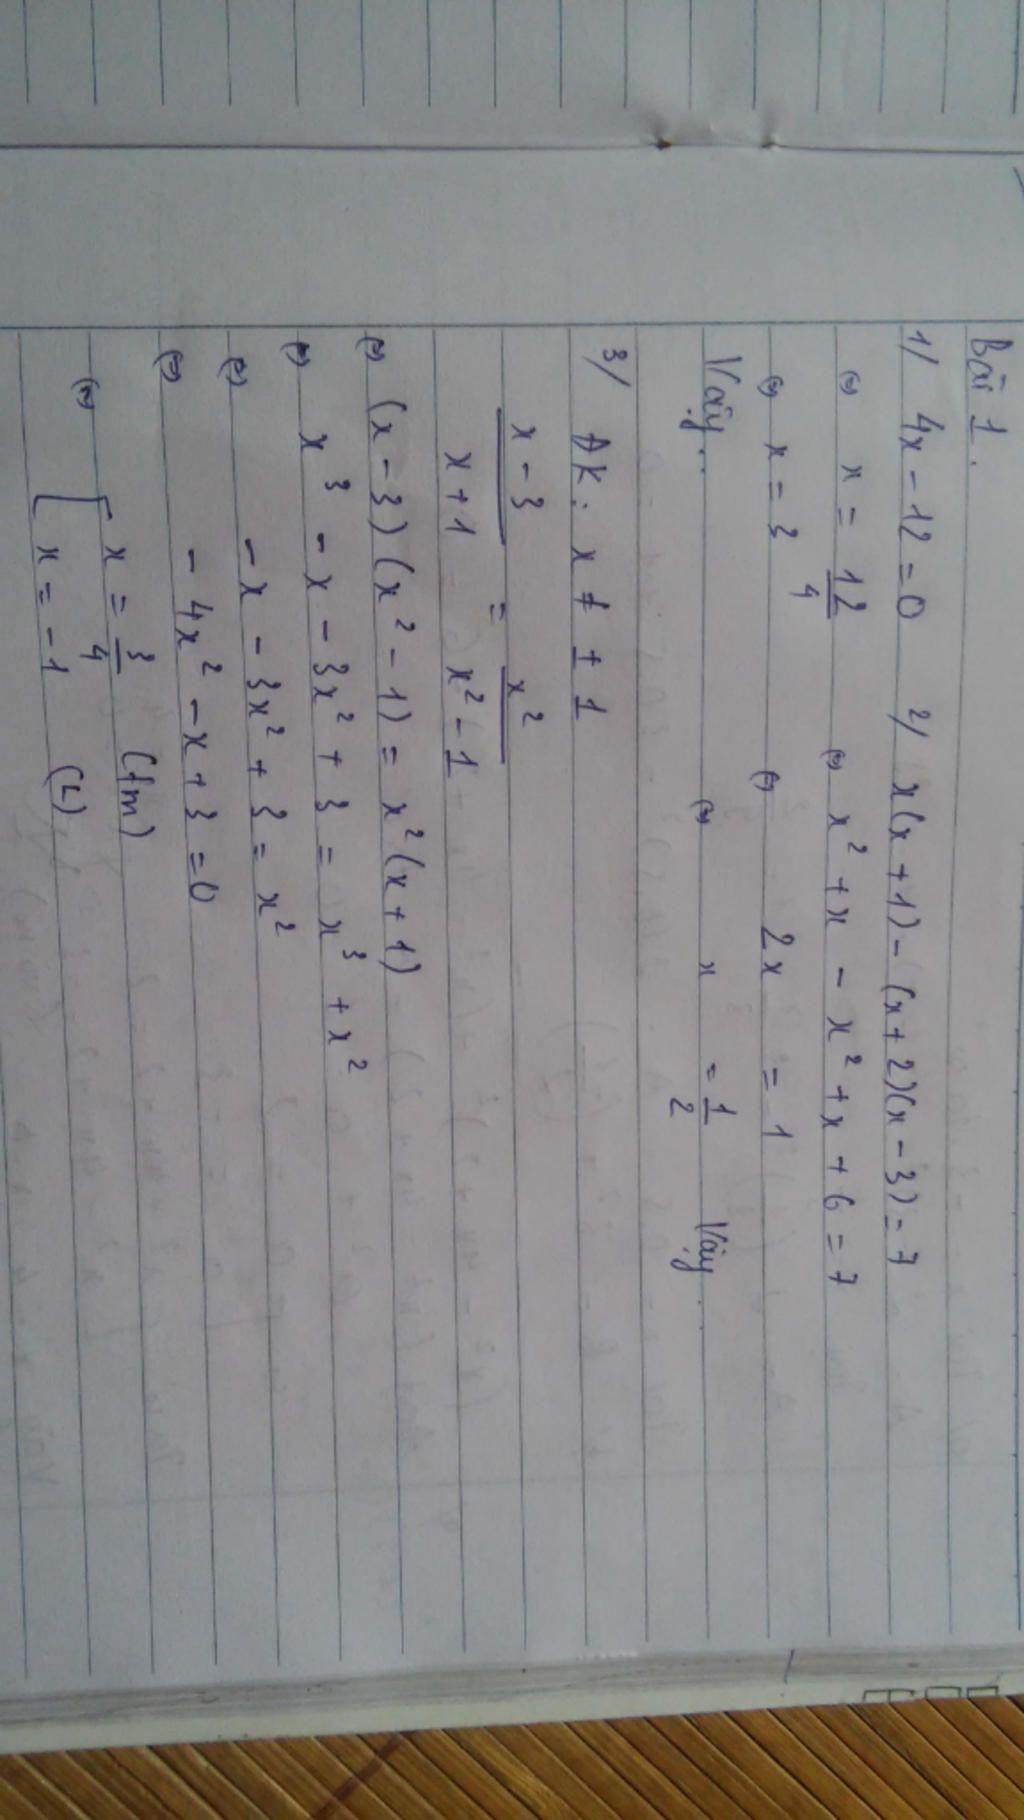 Bài 1.
1/ 4x - 12 = 0 2/ x(x + 1) - (x + 2)(x - 3) = 7
⇔ x = 12/4 ⇔ x² + x - x² + x + 6 = 7
⇔ x = 3 ⇔ 2x = 1
Vậy.. ⇔ x = 1/2 Vậy.
3/ ĐK: x ≠ ± 1
(x - 3)/(x + 1) = x²/(x² - 1)
⇔ (x - 3)(x² - 1) = x²(x + 1)
⇔ x³ - x - 3x² + 3 = x³ + x²
⇔ -x - 3x² + 3 = x²
⇔ - 4x² - x + 3 = 0
⇔ [ x = 3/4 (tm)
x = -1 (L)